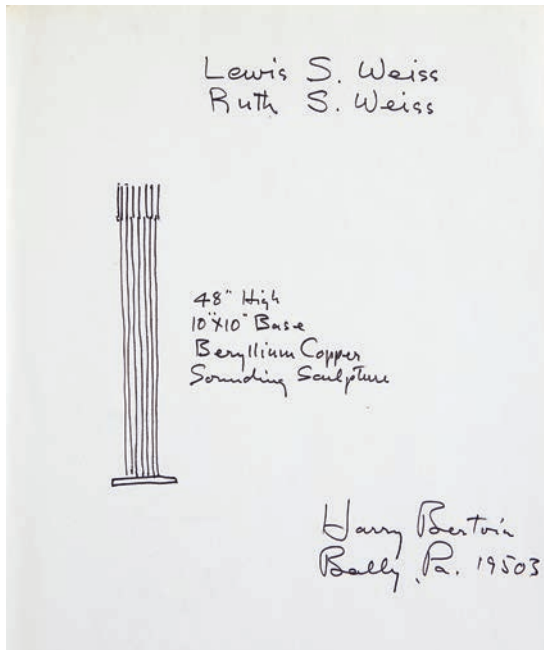 Lewis S. Weiss
Ruth S. Weiss
48" High
10"X10" Base
Beryllium Copper
Sounding Sculpture
Harry Bertoia
Bally, Pa. 19503